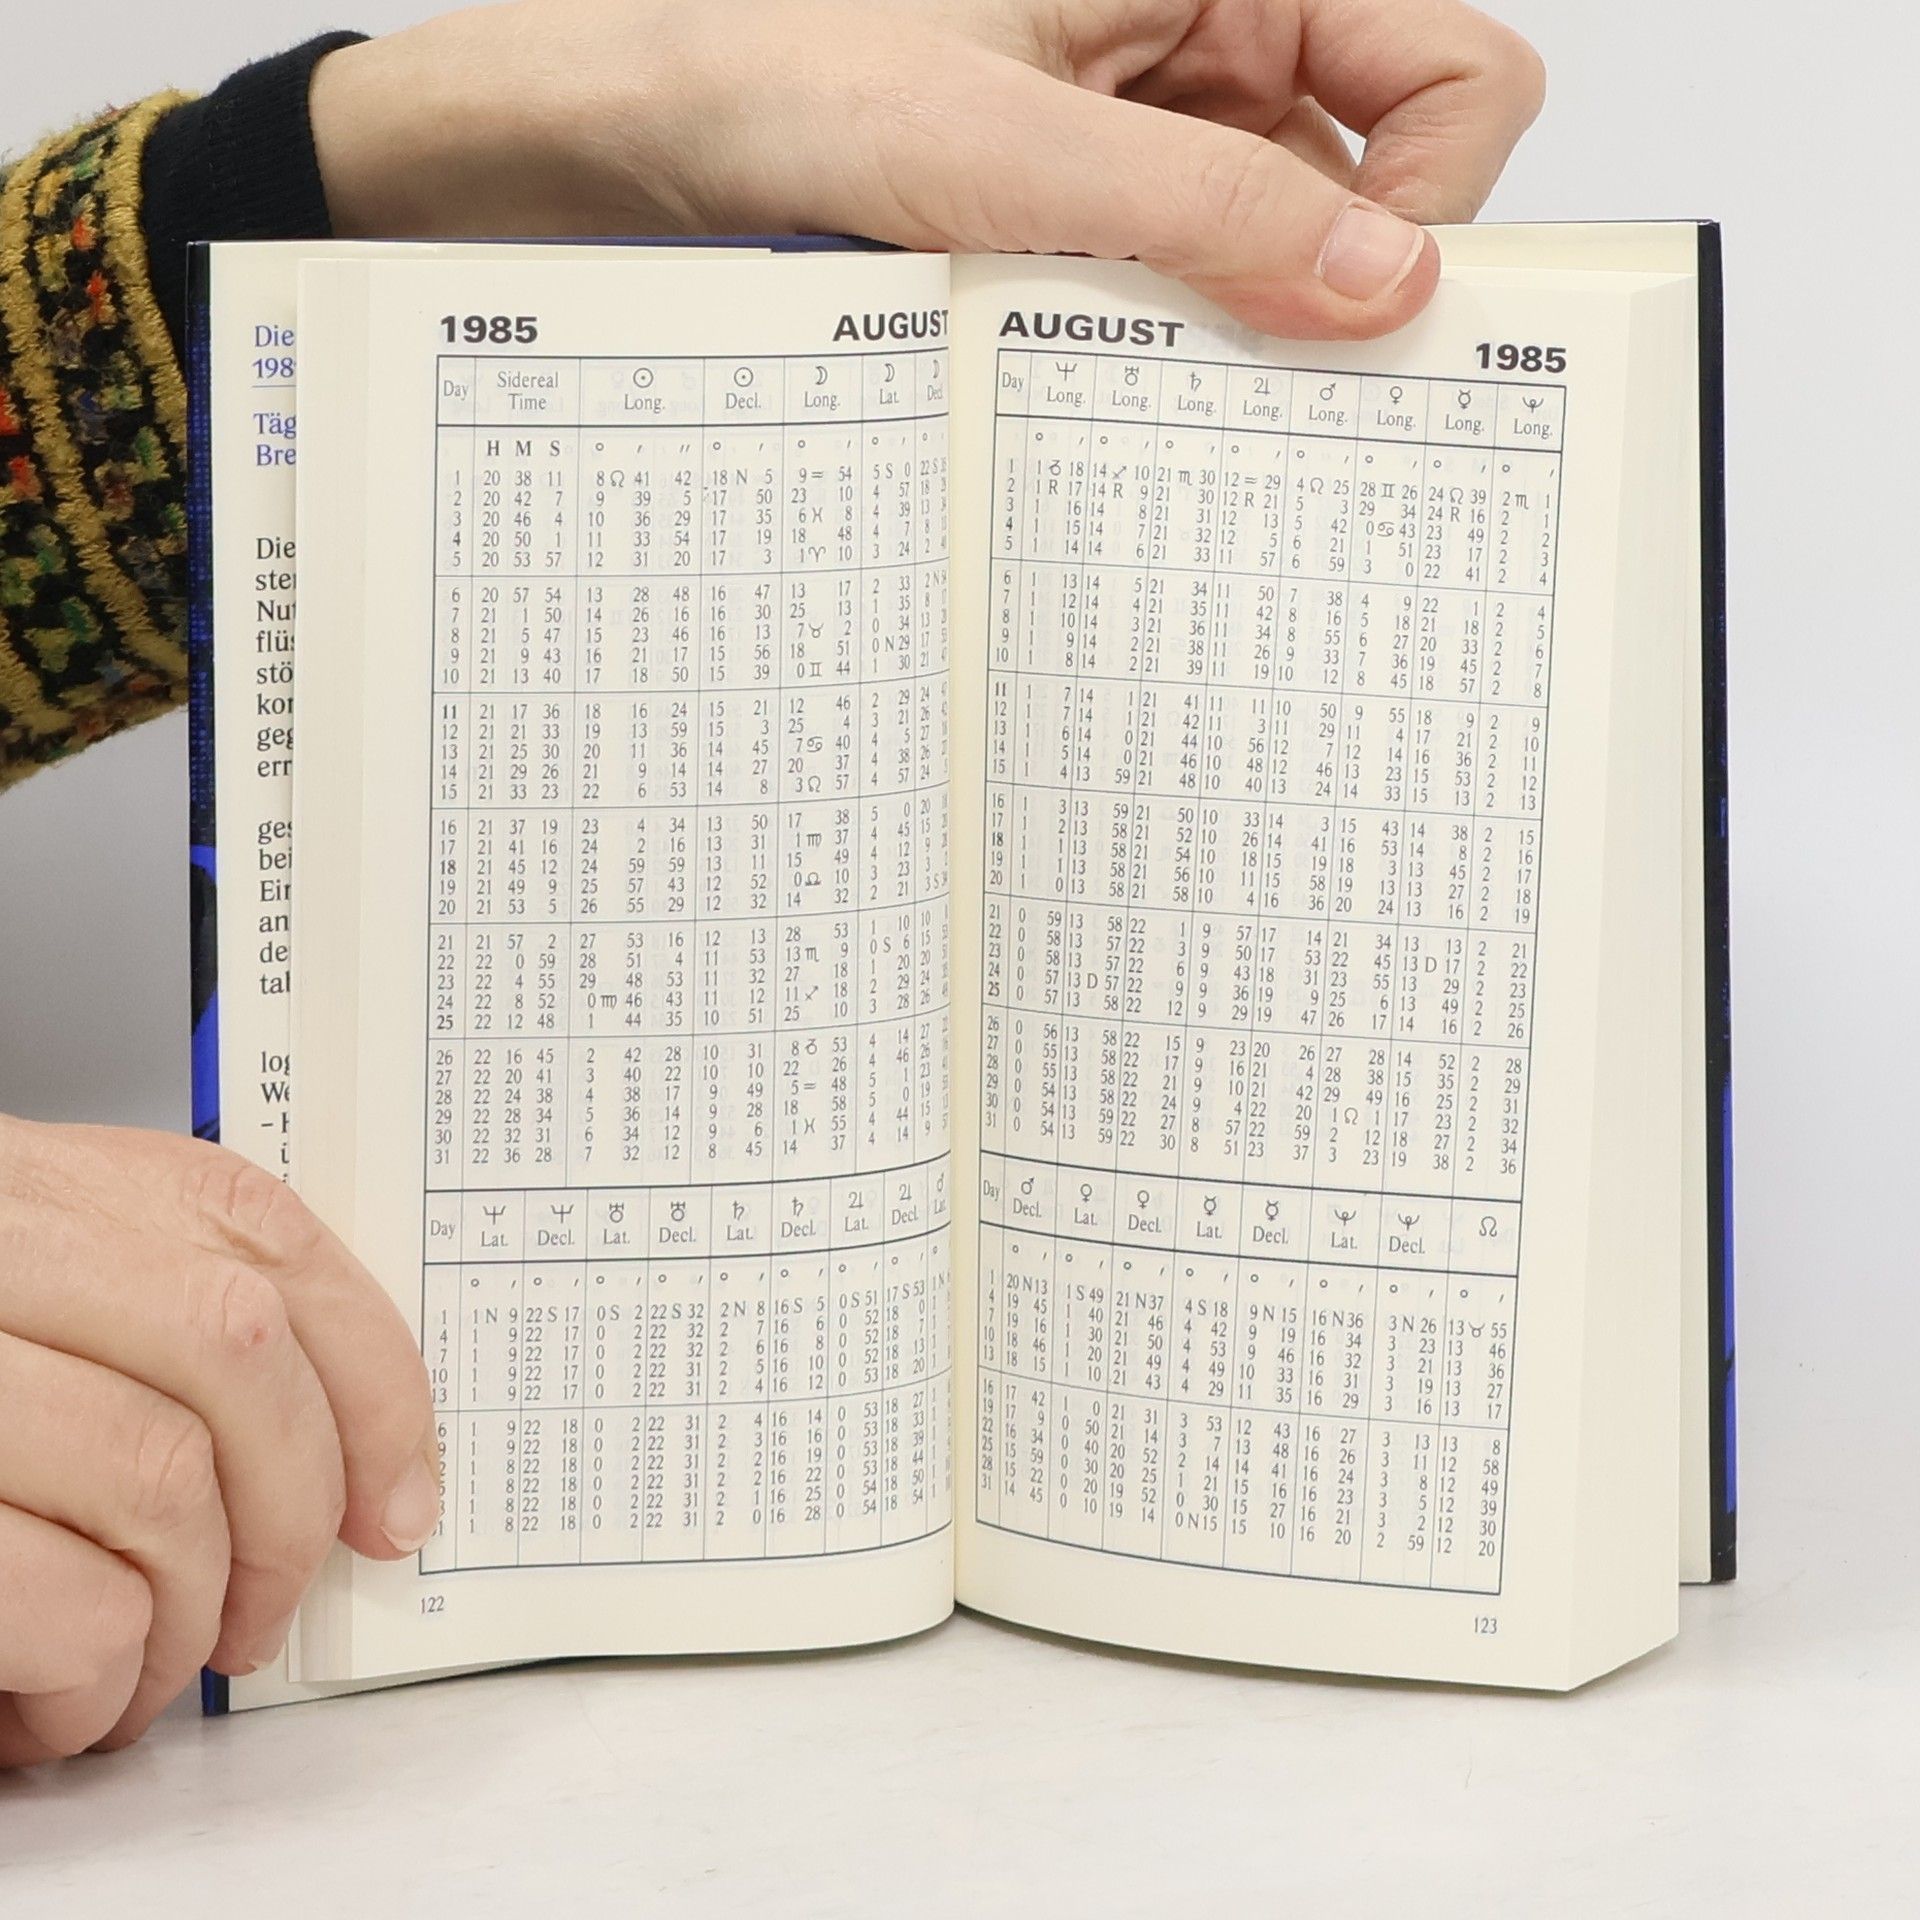 Die
198
Täg
Bre
Die
ste
Nut
flüs
stö
geg
ges
bei
Ein
an
de
log
We
1985 AUGUST
Day Sidereal Time ☉ Long. ☉ Decl. ☽ Long. ☽ Lat. ☽ Decl.
H M S ° ′ ″ ° ′ ° ′ ° ′ °
1 20 38 11 8 ♌ 41 42 18 N 5 9 ♒ 54 5 S 0 22 S
2 20 42 7 9 39 5 17 50 23 10 4 57 18
3 20 46 4 10 36 29 17 35 6 ♓ 8 4 39 13
4 20 50 1 11 33 54 17 19 18 48 4 7 8
5 20 53 57 12 31 20 17 3 1 ♈ 10 3 24 2
6 20 57 54 13 28 48 16 47 13 17 2 33 2 N
7 21 1 50 14 26 16 16 30 25 13 1 35 8
8 21 5 47 15 23 46 16 13 7 ♉ 2 0 34 13
9 21 9 43 16 21 17 15 56 18 51 0 N 29 17
10 21 13 40 17 18 50 15 39 0 ♊ 44 1 30 21
11 21 17 36 18 16 24 15 21 12 46 2 29 24
12 21 21 33 19 13 59 15 3 25 4 3 21 26
13 21 25 30 20 11 36 14 45 7 ♋ 40 4 5 27
14 21 29 26 21 9 14 14 27 20 37 4 38 26
15 21 33 23 22 6 53 14 8 3 ♌ 57 4 57 24
16 21 37 19 23 4 34 13 50 17 38 5 0 20
17 21 41 16 24 2 16 13 31 1 ♍ 37 4 45 15
18 21 45 12 24 59 59 13 11 15 49 4 12 9
19 21 49 9 25 57 43 12 52 0 ♎ 10 3 23 3
20 21 53 5 26 55 29 12 32 14 32 2 21 3 S
21 21 57 2 27 53 16 12 13 28 53 1 10 10
22 22 0 59 28 51 4 11 53 13 ♏ 9 0 S 6 15
23 22 4 55 29 48 53 11 32 27 18 1 20 20
24 22 8 52 0 ♍ 46 43 11 12 11 ♐ 18 2 29 24
25 22 12 48 1 44 35 10 51 25 10 3 28 26
26 22 16 45 2 42 28 10 31 8 ♑ 53 4 14 27
27 22 20 41 3 40 22 10 10 22 26 4 46 26
28 22 24 38 4 38 17 9 49 5 ♒ 48 5 1 23
29 22 28 34 5 36 14 9 28 18 58 5 0 19
30 22 32 31 6 34 12 9 6 1 ♓ 55 4 44 15
31 22 36 28 7 32 12 8 45 14 37 4 14 9
Day ♆ Lat. ♆ Decl. ♅ Lat. ♅ Decl. ♄ Lat. ♄ Decl. ♃ Lat. ♃ Decl. ♂ Lat.
° ′ ° ′ ° ′ ° ′ ° ′ ° ′ ° ′ ° ′ °
1 1 N 9 22 S 17 0 S 2 22 S 32 2 N 8 16 S 5 0 S 51 17 S 53 1 N
4 1 9 22 17 0 2 22 32 2 7 16 6 0 52 18 0 1
7 1 9 22 17 0 2 22 32 2 6 16 8 0 52 18 7 1
10 1 9 22 17 0 2 22 31 2 5 16 10 0 52 18 13 1
13 1 9 22 17 0 2 22 31 2 4 16 12 0 53 18 20 1
6 1 9 22 18 0 2 22 31 2 4 16 14 0 53 18 27 1
9 1 9 22 18 0 2 22 31 2 3 16 16 0 53 18 33 1
2 1 8 22 18 0 2 22 31 2 2 16 19 0 53 18 39 1
5 1 8 22 18 0 2 22 31 2 2 16 22 0 53 18 44 1
1 8 22 18 0 2 22 31 2 1 16 25 0 54 18 50 1
1 1 8 22 18 0 2 22 31 2 0 16 28 0 54 18 54 1
122
AUGUST 1985
Day ♆ Long. ♅ Long. ♄ Long. ♃ Long. ♂ Long. ♀ Long. ☿ Long. ♇ Long.
° ′ ° ′ ° ′ ° ′ ° ′ ° ′ ° ′ ° ′
1 1 ♑ 18 14 ♐ 10 21 ♏ 30 12 ♒ 29 4 ♌ 25 28 ♊ 26 24 ♌ 39 2 ♏ 1
2 1 R 17 14 R 9 21 30 12 R 21 5 3 29 34 24 R 16 2 1
3 1 16 14 8 21 31 12 13 5 42 0 ♋ 43 23 49 2 2
4 1 15 14 7 21 32 12 5 6 21 1 51 23 17 2 3
5 1 14 14 6 21 33 11 57 6 59 3 0 22 41 2 4
6 1 13 14 5 21 34 11 50 7 38 4 9 22 1 2 4
7 1 12 14 4 21 35 11 42 8 16 5 18 21 18 2 5
8 1 10 14 3 21 36 11 34 8 55 6 27 20 33 2 6
9 1 9 14 2 21 38 11 26 9 33 7 36 19 45 2 7
10 1 8 14 2 21 39 11 19 10 12 8 45 18 57 2 8
11 1 7 14 1 21 41 11 11 10 50 9 55 18 9 2 9
12 1 7 14 1 21 42 11 3 11 29 11 4 17 21 2 10
13 1 6 14 0 21 44 10 56 12 7 12 14 16 36 2 11
14 1 5 14 0 21 46 10 48 12 46 13 23 15 53 2 12
15 1 4 13 59 21 48 10 40 13 24 14 33 15 13 2 13
16 1 3 13 59 21 50 10 33 14 3 15 43 14 38 2 15
17 1 2 13 58 21 52 10 26 14 41 16 53 14 8 2 16
18 1 1 13 58 21 54 10 18 15 19 18 3 13 45 2 17
19 1 1 13 58 21 56 10 11 15 58 19 13 13 27 2 18
20 1 0 13 58 21 58 10 4 16 36 20 24 13 16 2 19
21 0 59 13 58 22 1 9 57 17 14 21 34 13 13 2 21
22 0 58 13 57 22 3 9 50 17 53 22 45 13 D 17 2 22
23 0 58 13 57 22 6 9 43 18 31 23 55 13 29 2 23
24 0 57 13 D 57 22 9 9 36 19 9 25 6 13 49 2 25
25 0 57 13 58 22 12 9 29 19 47 26 17 14 16 2 26
26 0 56 13 58 22 15 9 23 20 26 27 28 14 52 2 28
27 0 55 13 58 22 17 9 16 21 4 28 38 15 35 2 29
28 0 55 13 58 22 21 9 10 21 42 29 49 16 25 2 31
29 0 54 13 58 22 24 9 4 22 20 1 ♌ 1 17 23 2 32
30 0 54 13 59 22 27 8 57 22 59 2 12 18 27 2 34
31 0 54 13 59 22 30 8 51 23 37 3 23 19 38 2 36
Day ♂ Decl. ♀ Lat. ♀ Decl. ☿ Lat. ☿ Decl. ♇ Lat. ♇ Decl. ☊
° ′ ° ′ ° ′ ° ′ ° ′ ° ′ ° ′ ° ′
1 20 N 13 1 S 49 21 N 37 4 S 18 9 N 15 16 N 36 3 N 26 13 ♉ 55
4 19 45 1 40 21 46 4 42 9 19 16 34 3 23 13 46
7 19 16 1 30 21 50 4 53 9 46 16 32 3 21 13 36
10 18 46 1 20 21 49 4 49 10 33 16 31 3 19 13 27
13 18 15 1 10 21 43 4 29 11 35 16 29 3 16 13 17
16 17 42 1 0 21 31 3 53 12 43 16 27 3 13 13 8
19 17 9 0 50 21 14 3 7 13 48 16 26 3 11 12 58
22 16 34 0 40 20 52 2 14 14 41 16 24 3 8 12 49
25 15 59 0 30 20 25 1 21 15 16 16 23 3 5 12 39
28 15 22 0 20 19 52 0 30 15 27 16 21 3 2 12 30
31 14 45 0 10 19 14 0 N 15 15 10 16 20 2 59 12 20
123